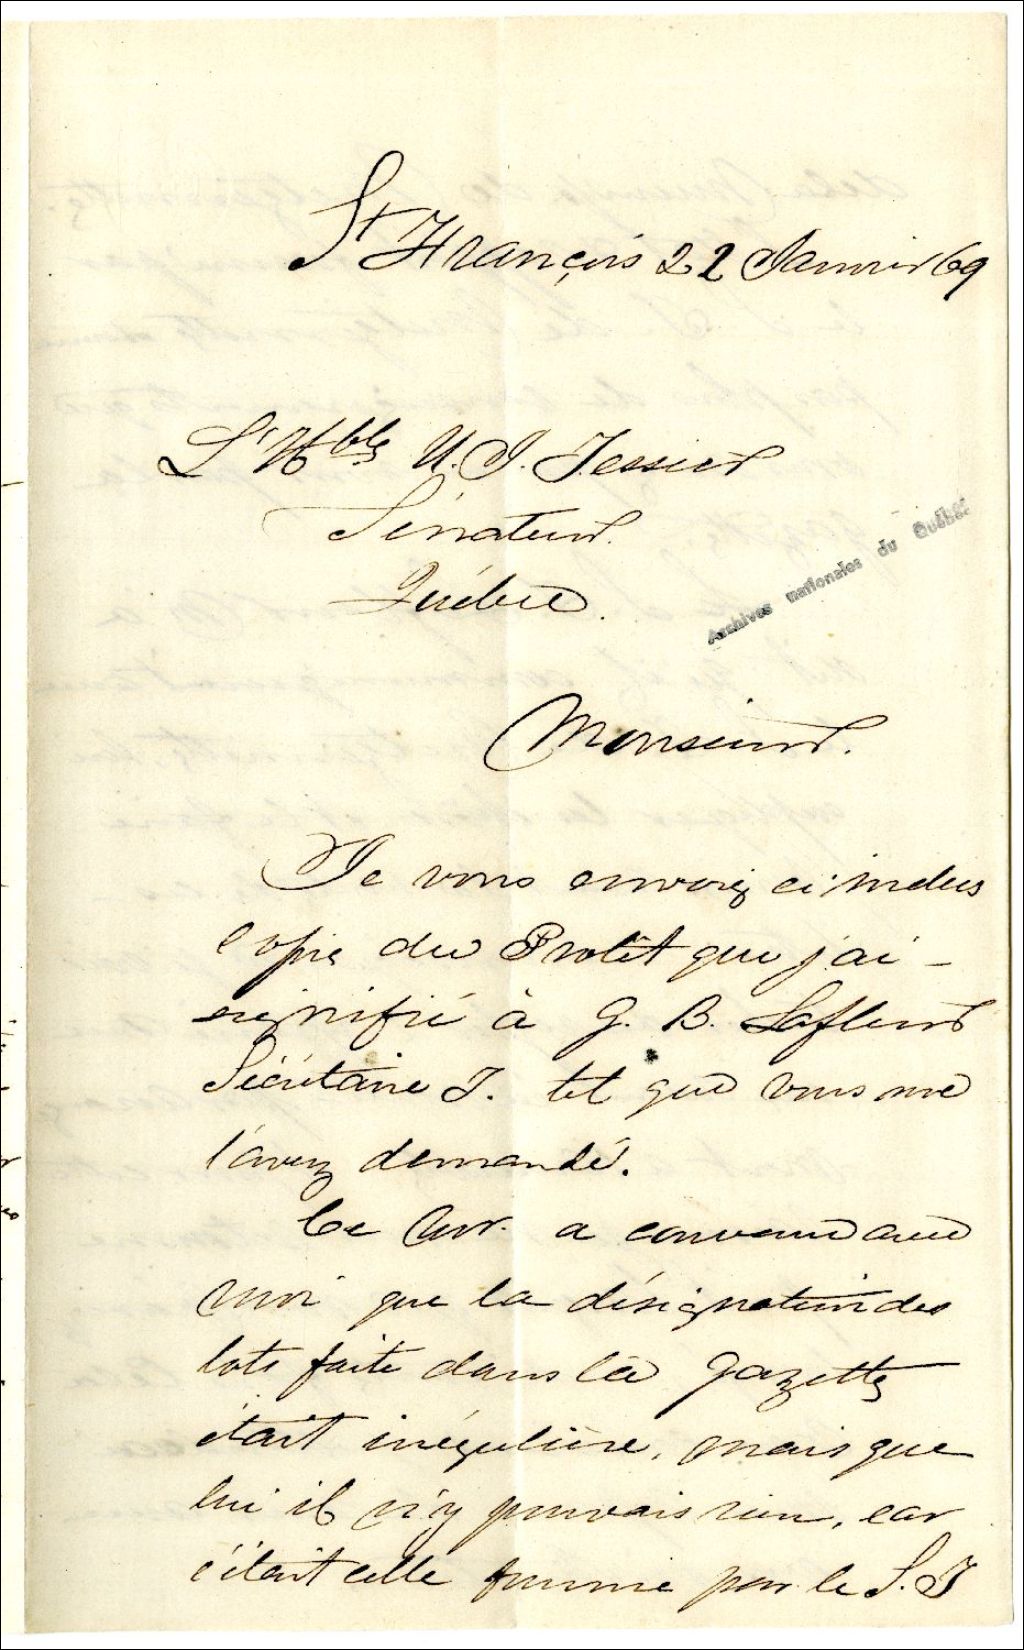 St François 22 Janvier 69
L'Hble U. J. Tessier
Sénateur.
Québec.
Archives nationales du Québec
Monsieur.
Je vous envoie ci-inclus
copie du Protêt que j'ai
signifié à G. B. Lafleur
Sécrétaire T. tel que vous me
l'avez demandé.
Ce Mr. a convenu avec
moi que la désignation des
lots faite dans la Gazette
était irrégulière, mais que
lui il n'y pouvais rien, car
c'était celle fournie par le S. T